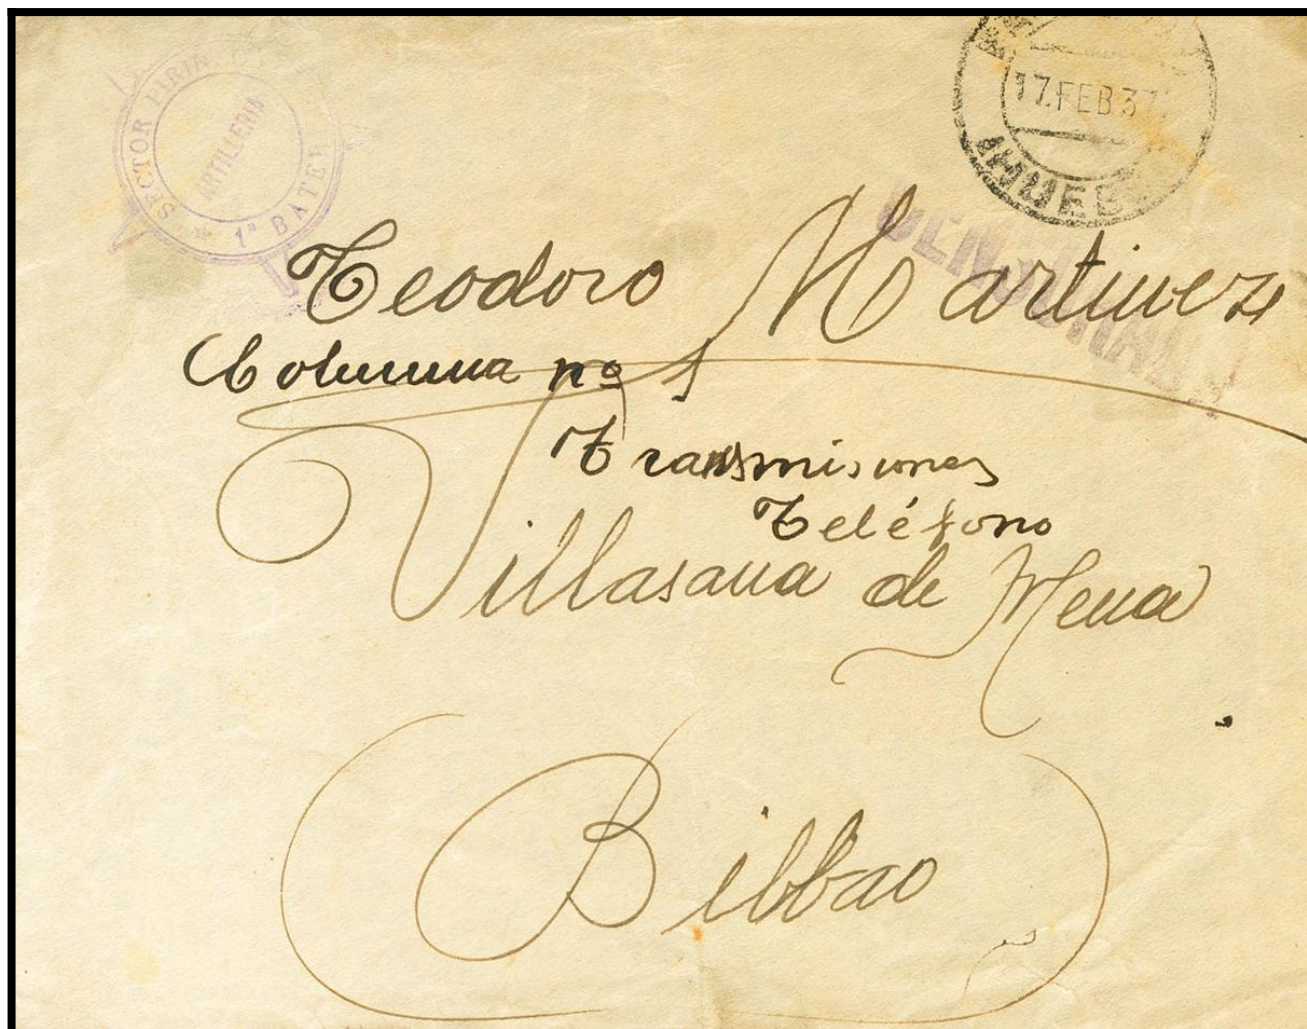 SECTOR PIRIN
ARTILLERIA
1ª BATER
17.FEB 37
(HUES
CENSURAD
Teodoro Martinez
Columna nº 1
Transmisiones
Teléfono
Villasana de Mena
Bilbao